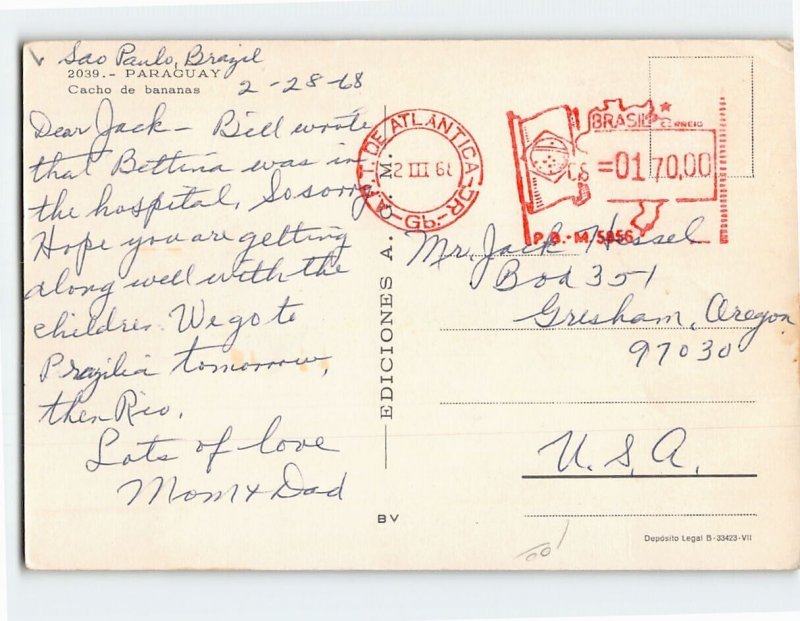 Sao Paulo, Brazil
2039.- PARAGUAY
Cacho de bananas
2-28-68
Dear Jack - Bill wrote
that Bettina was in
the hospital, So sorry
Hope you are getting
along well with the
children We go to
Brazilia tomorrow,
then Rio.
Lots of love
Mom & Dad
EDICIONES A. Q. M.
BV
A.P.T. DE ATLÂNTICA-DR-Gb.
2 III 68
BRASIL CORREIO
CS =01 70,00
P.B.-M. 5856
Mr. Jack Hessel
Box 351
Gresham, Oregon
97030
U.S.A.
Depósito Legal B-33423-VII